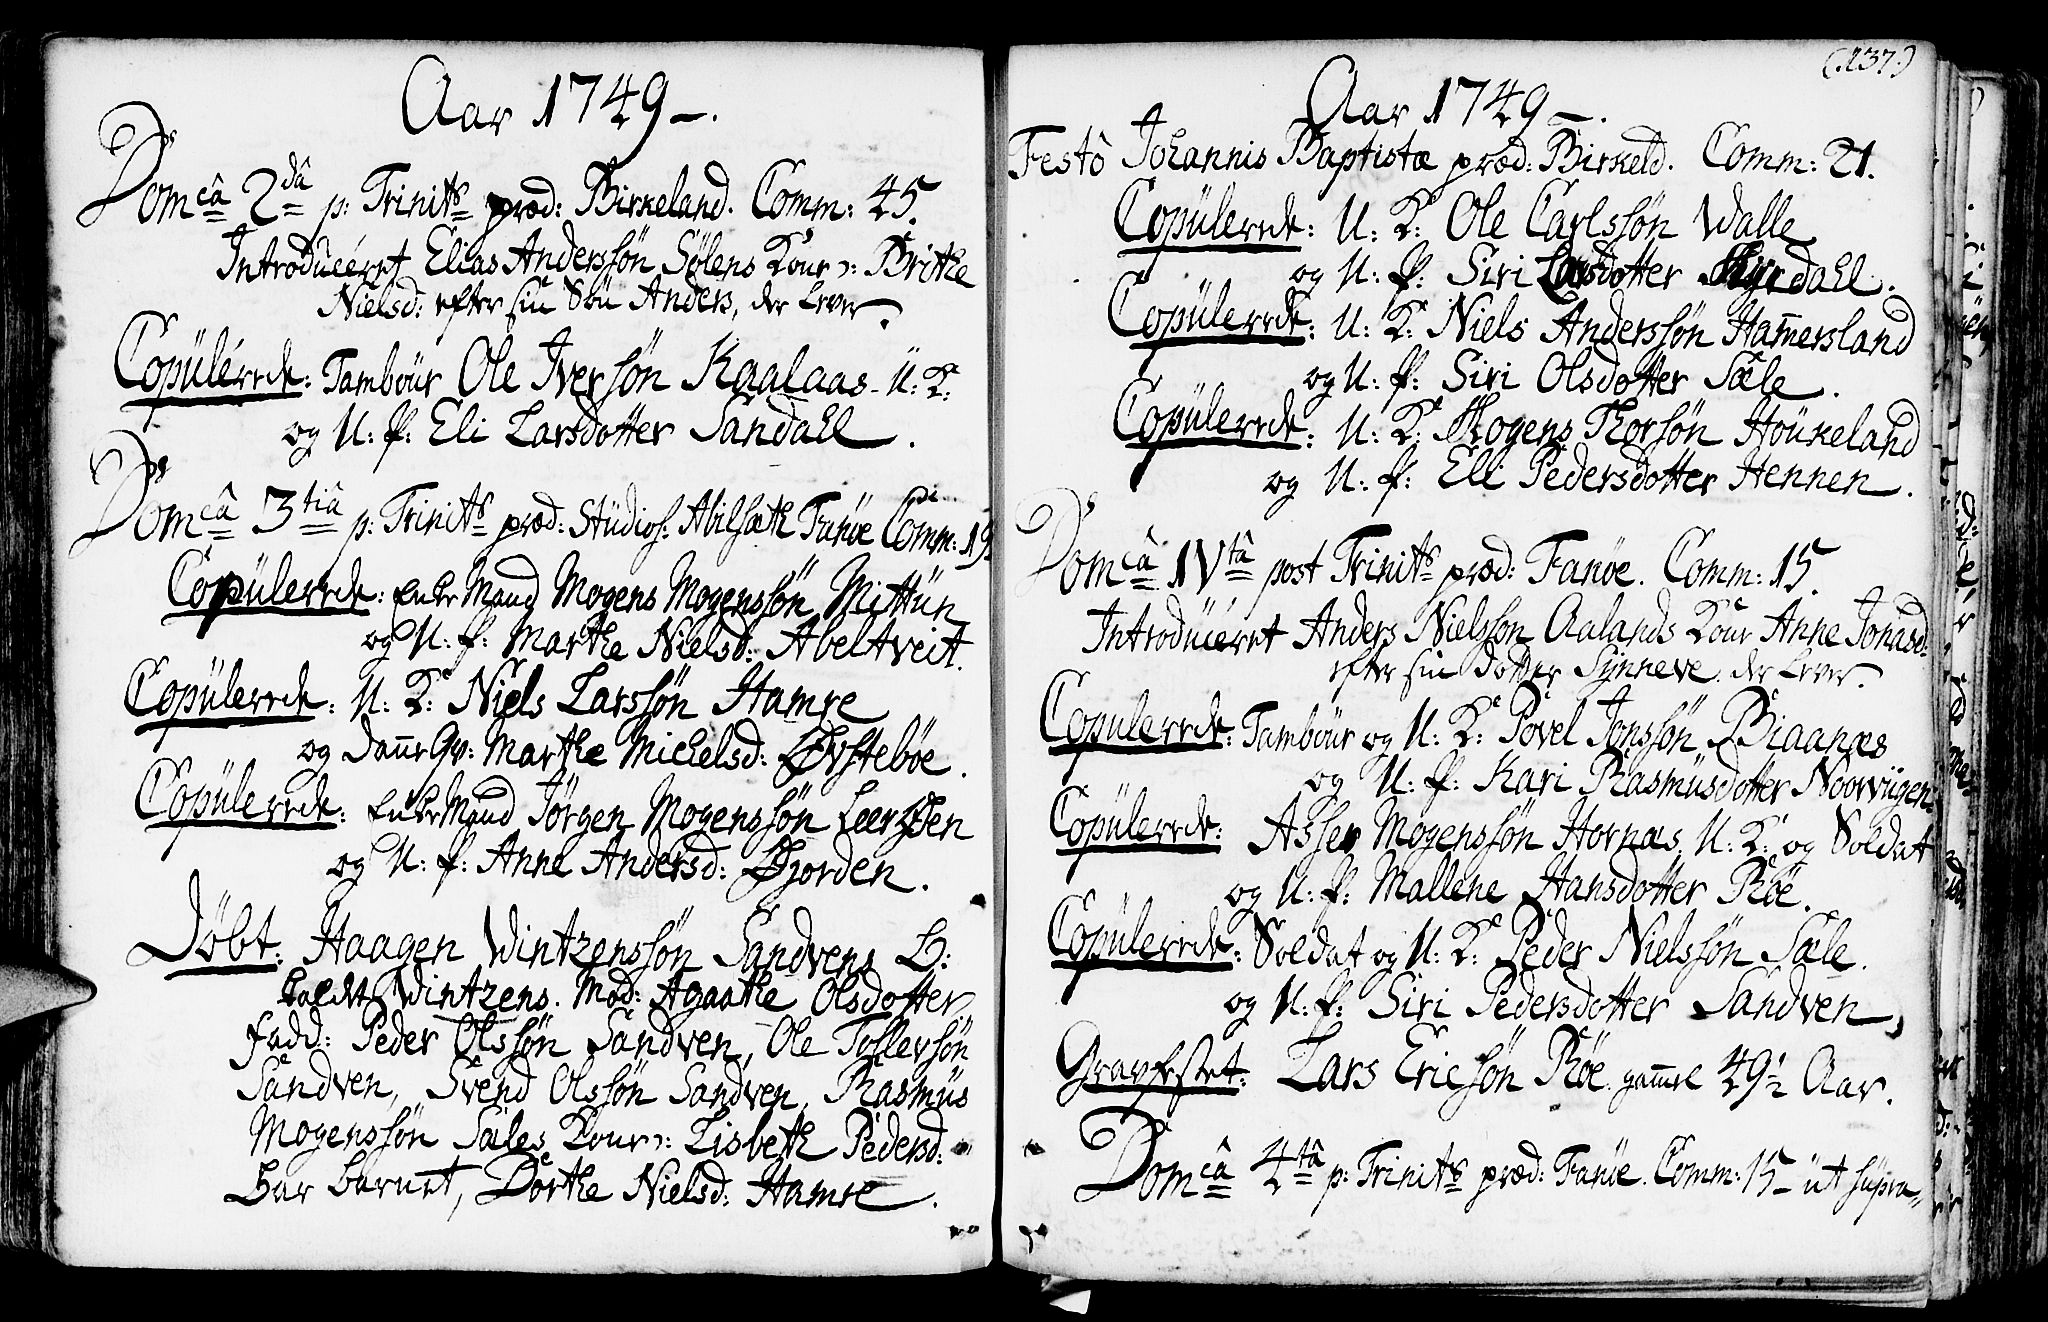 Aar 1749 –.
Domcâ 2dâ p: Trinits præd: Birkeland. Comm: 45.
Introdúceret Elias Anderssøn Sølens Kone ɔ: Brithe
Nielsd: efter sin Søn Anders, der lever.
Copúlerede: Tamboúr Ole Iversøn Kaalaas - U: K:
og U: P: Eli Larsdotter Sandahl.
Domcâ 3tiâ p: Trinits præd: Stúdios: Abilsæth Fanöe Comm: 19.
Copúlerede: EnkeMand Mogens Mogenssøn Mittún
og U: P: Marthe Nielsd: Abeltveit.
Copúlerede: U: K: Niels Larssøn Hamre
og DanneQv: Marthe Michelsd: Øvstebøe.
Copúlerede: EnkeMand Jørgen Mogenssøn Leerøen
og U: P: Anne Andersd: Gjorden.
Døbt: Haagen Wintzenssøn Sandvens B:
kaldt Wintzens. Mod: Agaathe Olsdotter
fadd: Peder Olssøn Sandven, Ole Tollevsøn
Sandven, Svend Olssøn Sandven, Rasmús
Mogenssøn Sæles Kone ɔ: Lisbeth Pedersd:
bar barnet, Dorthe Nielsd: Hamre.
(:137:)
Aar 1749 –.
Festô Johannis Baptistæ præd: Birkeld. Comm: 21.
Copúlerede: U: K: Ole Carlssøn Walle
og U: P: Siri Larsdotter Myrdahl.
Copúlerede: U: K: Niels Anderssøn Ham̄ersland
og U: P: Siri Olsdotter Sæle.
Copúlerede: U: K: Mogens Thorsøn Hoúkeland
og U: P: Eli Pedersdotter Hennen.
Domcâ IVtâ post Trinits præd: Fanöe. Comm: 15.
Introdúceret Anders Nielssøn Aalands Kone Anne Jonasd:
efter sin dotter Synneve, der lever.
Copúlerede: Tamboúr og U: K: Povel Jonssøn Biaanæs
og U: P: Kari Rasmúsdotter Noorviigen.
Copúlerede: Asser Mogenssøn Hornæs, U: K: og Soldat
og U: P: Mallene Hansdotter Röe.
Copúlerede: Soldat og U: K: Peder Nielssøn Sæle.
og U: P: Siri Pedersdotter Sandven,
Gravfestet: Lars Ericsøn Röe gam̄el 49½ Aar.
Domcâ 4tâ p: Trinits præd: Fanöe. Comm: 15 – út súpra